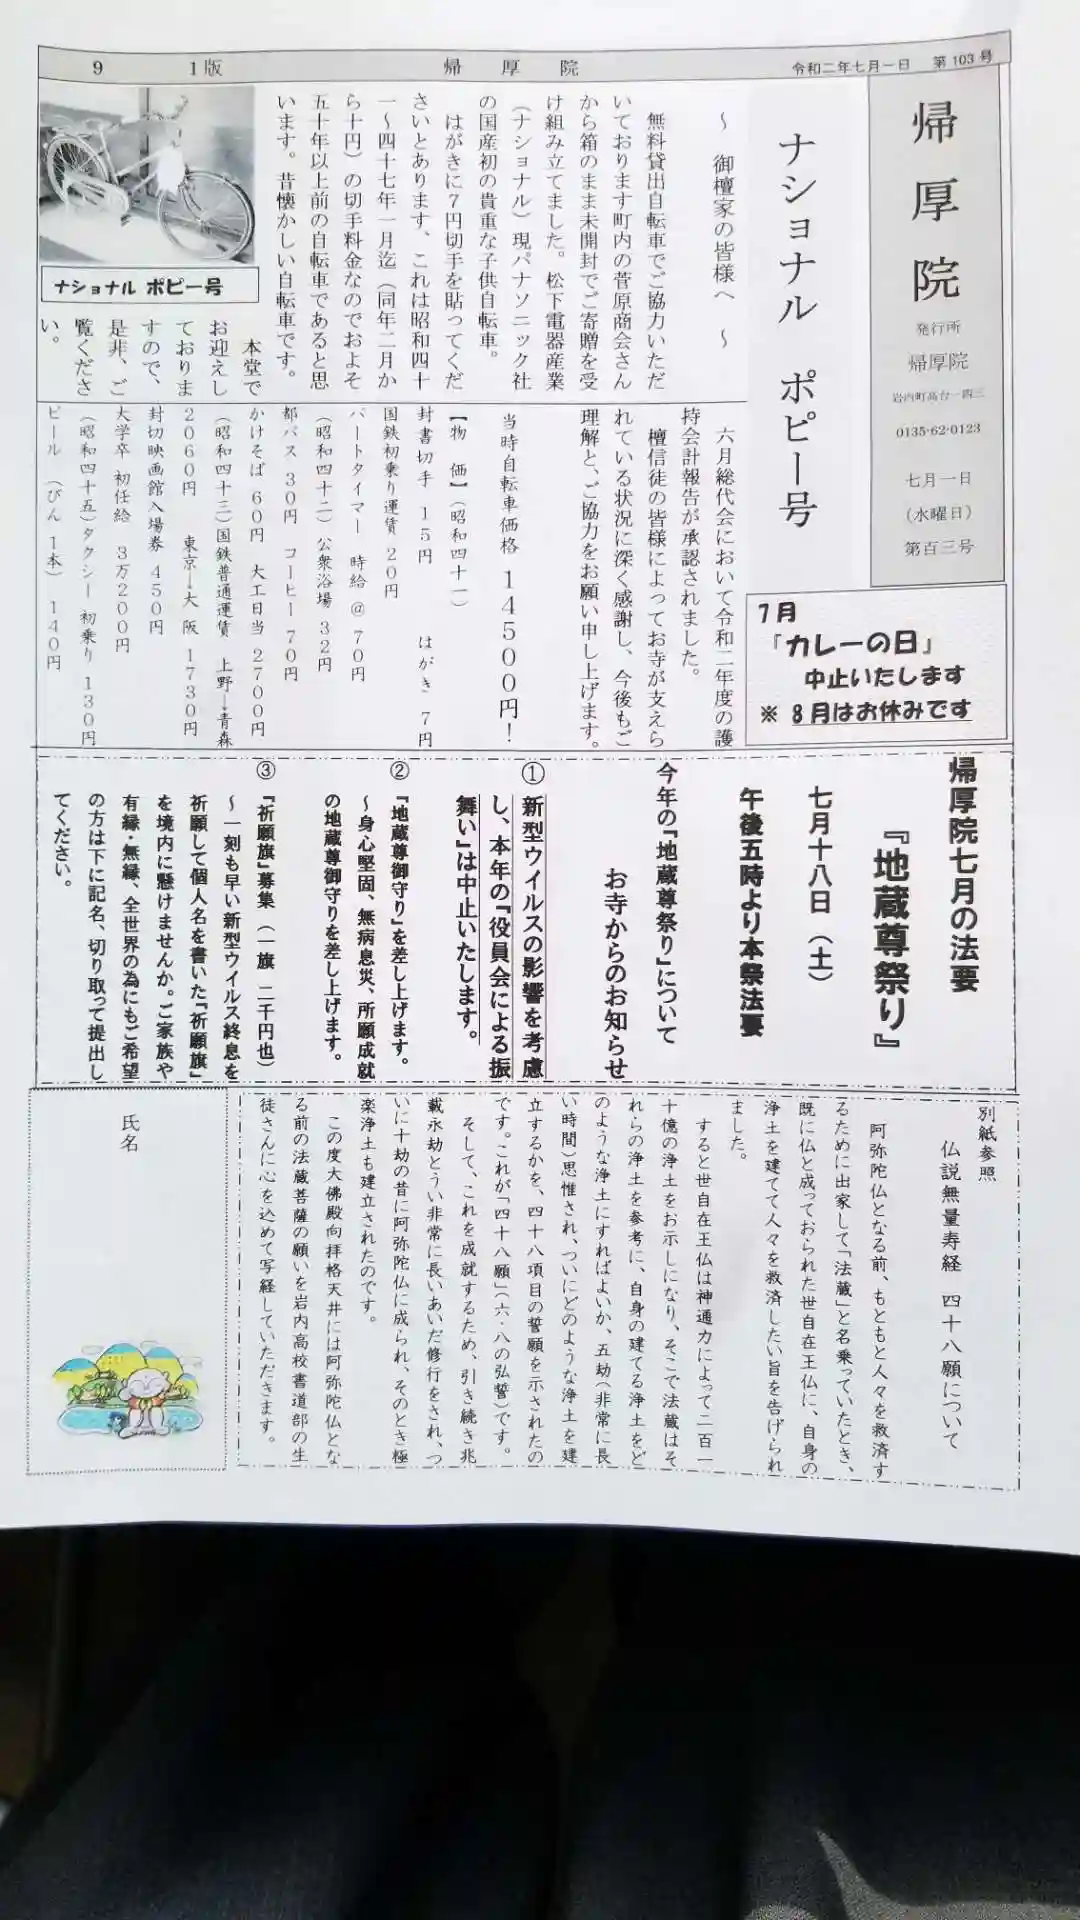 9　1版　帰厚院　令和二年七月一日　第103号
帰厚院
発行所
帰厚院
岩内町高台一四三
0135-62-0123
七月一日
（水曜日）
第百三号
ナショナル ポピー号
～ 御檀家の皆様へ ～
無料貸出自転車でご協力いただ
いております町内の菅原商会さん
から箱のまま未開封でご寄贈を受
け組み立てました。松下電器産業
（ナショナル）現パナソニック社
の国産初の貴重な子供自転車。
はがきに７円切手を貼ってくだ
さいとあります、これは昭和四十
一～四十七年一月迄（同年二月か
ら十円）の切手料金なのでおよそ
五十年以上前の自転車であると思
います。昔懐かしい自転車です。
ナショナル ポピー号
本堂で
お迎えし
ておりま
すので、
是非、ご
覧くださ
い。
7月
「カレーの日」
中止いたします
※ 8月はお休みです
六月総代会において令和二年度の護
持会計報告が承認されました。
檀信徒の皆様によってお寺が支えら
れている状況に深く感謝し、今後もご
理解と、ご協力をお願い申し上げます。
当時自転車価格 １４５００円！
【物　価】（昭和四十一）
封書切手　１５円　はがき　７円
国鉄初乗り運賃　２０円
パートタイマー　時給＠７０円
（昭和四十二）公衆浴場　３２円
都バス　３０円　コーヒー７０円
かけそば　６０円　大工日当　２７００円
（昭和四十三）国鉄普通運賃　上野→青森
２０６０円　東京→大阪　１７３０円
封切映画館入場券　４５０円
大学卒　初任給　３万２００円
（昭和四十五）タクシー　初乗り　１３０円
ビール　（びん１本）　１４０円
帰厚院七月の法要
『地蔵尊祭り』
七月十八日（土）
午後五時より本祭法要
今年の「地蔵尊祭り」について
お寺からのお知らせ
① 新型ウイルスの影響を考慮
し、本年の『役員会による振
舞い』は中止いたします。
② 『地蔵尊御守り』を差し上げます。
～身心堅固、無病息災、所願成就
の地蔵尊御守りを差し上げます。
③ 『祈願旗』募集（一旗　二千円也）
～一刻も早い新型ウイルス終息を
祈願して個人名を書いた『祈願旗』
を境内に懸けませんか。ご家族や
有縁・無縁、全世界の為にもご希望
の方は下に記名、切り取って提出し
てください。
別紙参照
仏説無量寿経　四十八願について
阿弥陀仏となる前、もともと人々を救済す
るために出家して「法蔵」と名乗っていたとき、
既に仏と成っておられた世自在王仏に、自身の
浄土を建てて人々を救済したい旨を告げられ
ました。
すると世自在王仏は神通力によって二百一
十億の浄土をお示しになり、そこで法蔵はそ
れらの浄土を参考に、自身の建てる浄土をど
のような浄土にすればよいか、五劫（非常に長
い時間）思惟され、ついにどのような浄土を建
立するかを、四十八項目の誓願を示されたの
です。これが「四十八願」（六・八の弘誓）です。
そして、これを成就するため、引き続き兆
載永劫とうい非常に長いあいだ修行をされ、つ
いに十劫の昔に阿弥陀仏に成られ、そのとき極
楽浄土も建立されたのです。
この度大佛殿向拝格天井には阿弥陀仏とな
る前の法蔵菩薩の願いを岩内高校書道部の生
徒さんに心を込めて写経していただきます。
氏名